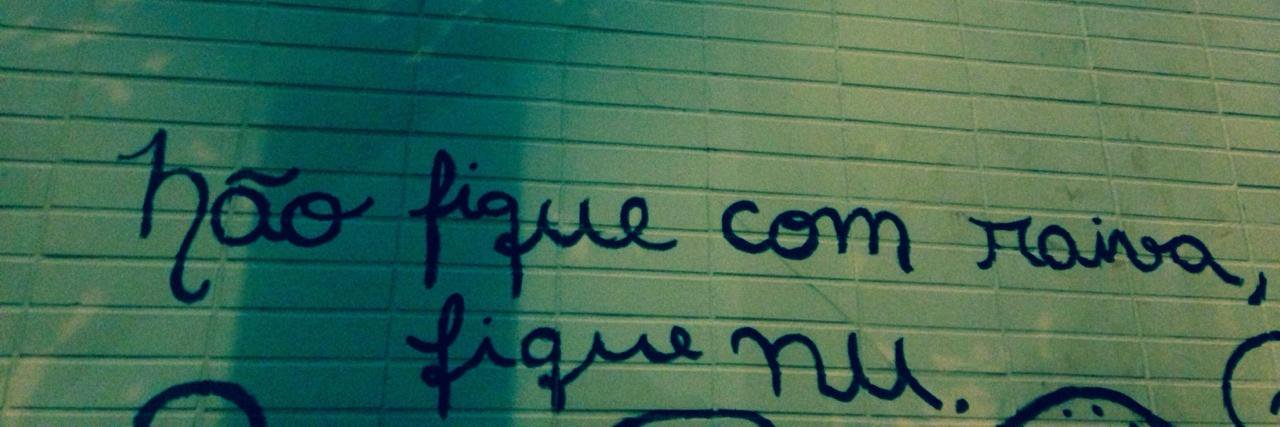 Não fique com raiva,
fique nu.